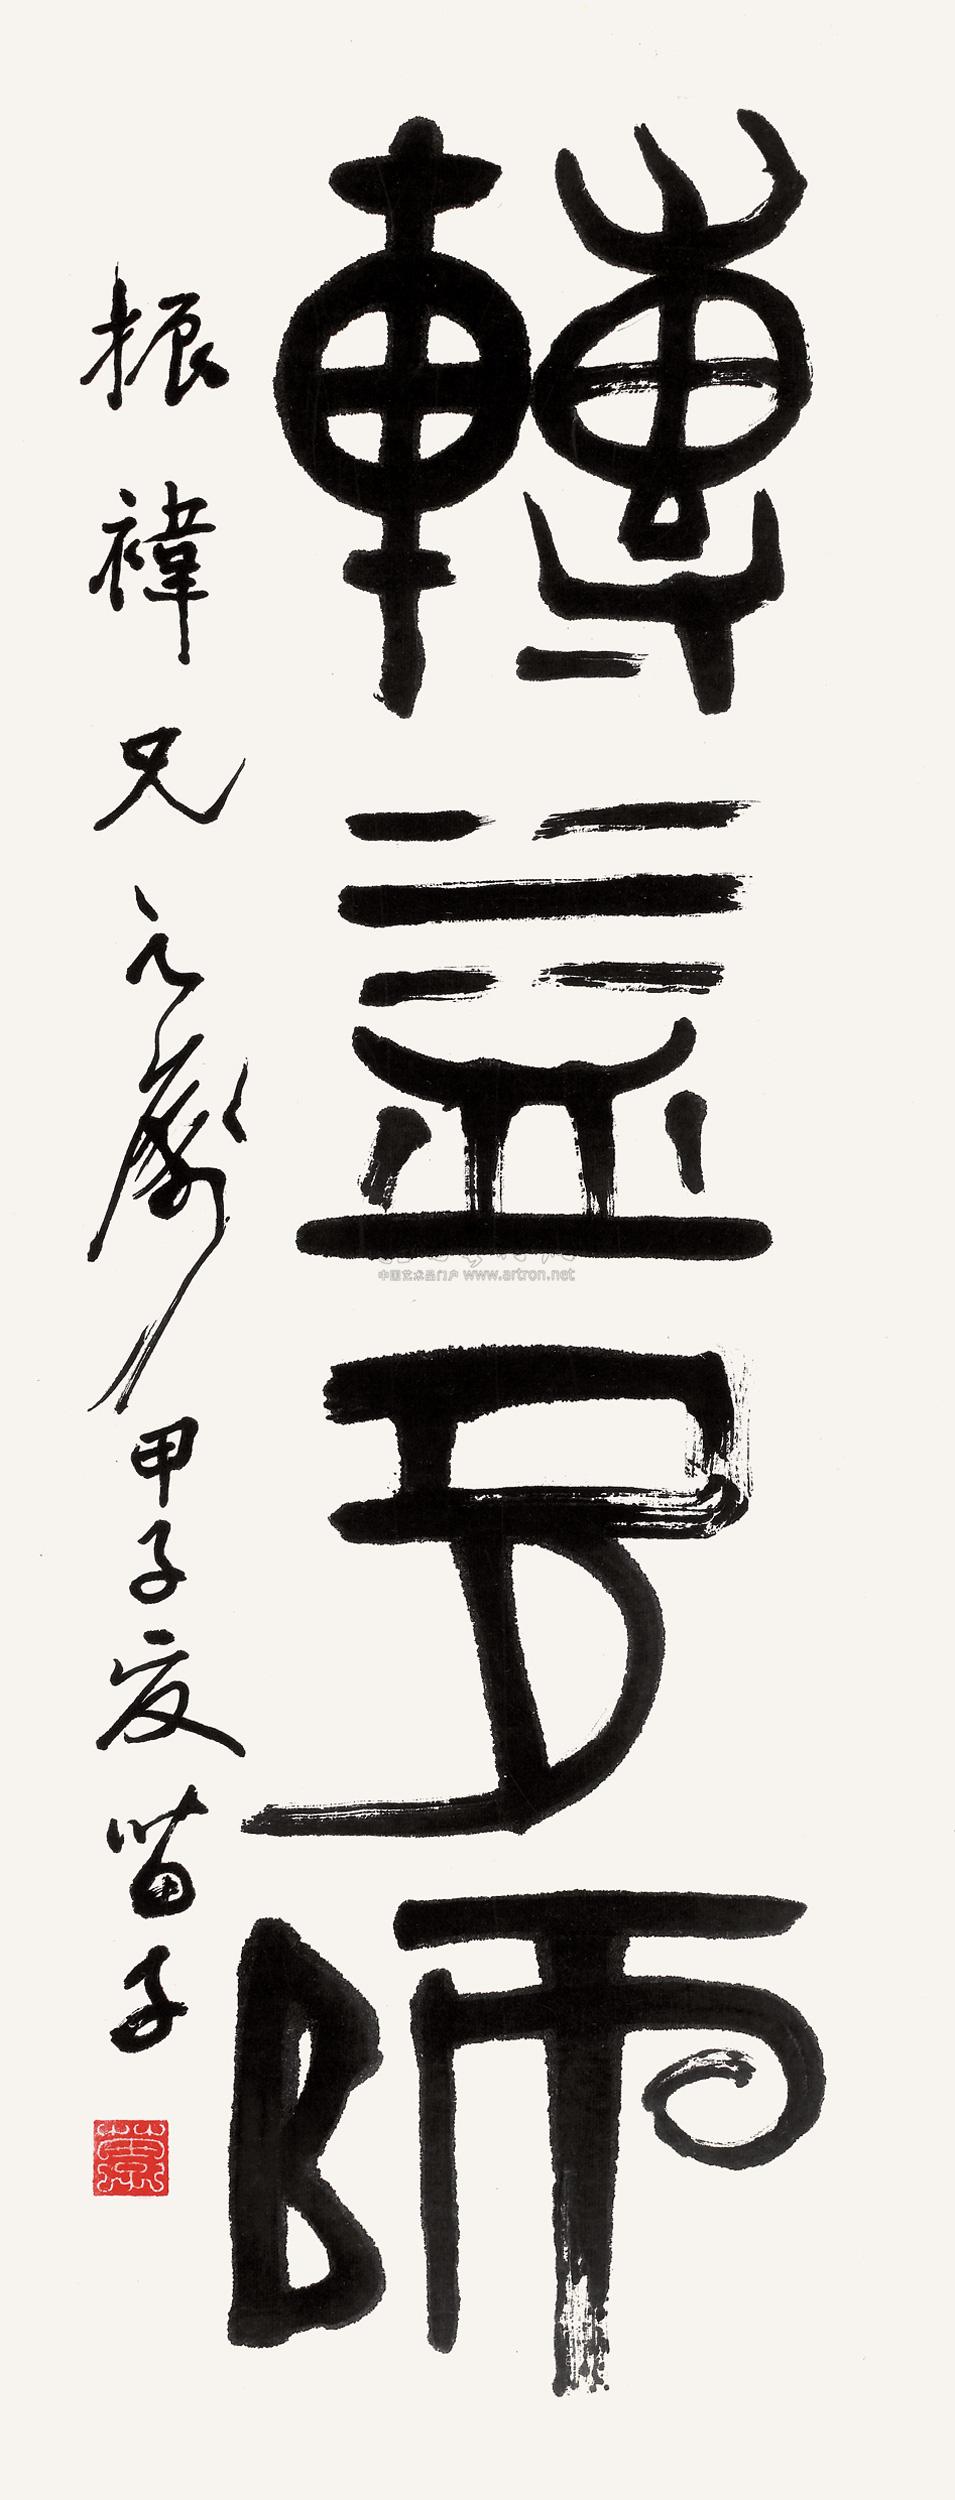 轉益多師
振褘兄之屬 甲子夏 苗子
中国艺术品门户 www.artron.net